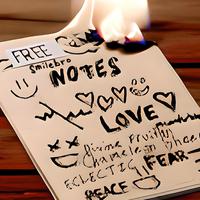 FREE
Smilebro
NOTES
LOVE
Divine Fruitly
Chameleon
ECLECTIC FEAR
PEACE